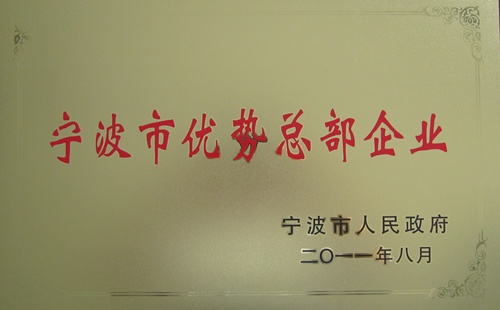 宁波市优势总部企业
宁波市人民政府
二〇一一年八月